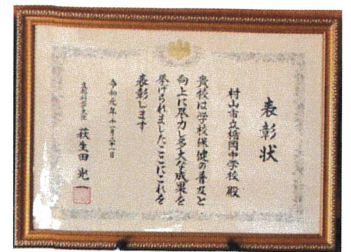 表彰状
村山市立楯岡中学校 殿
貴校は学校保健の普及と
向上に尽力し多大な成果を
挙げられましたここにこれを
表彰します
令和元年十一月二十一日
文部科学大臣 萩生田光一